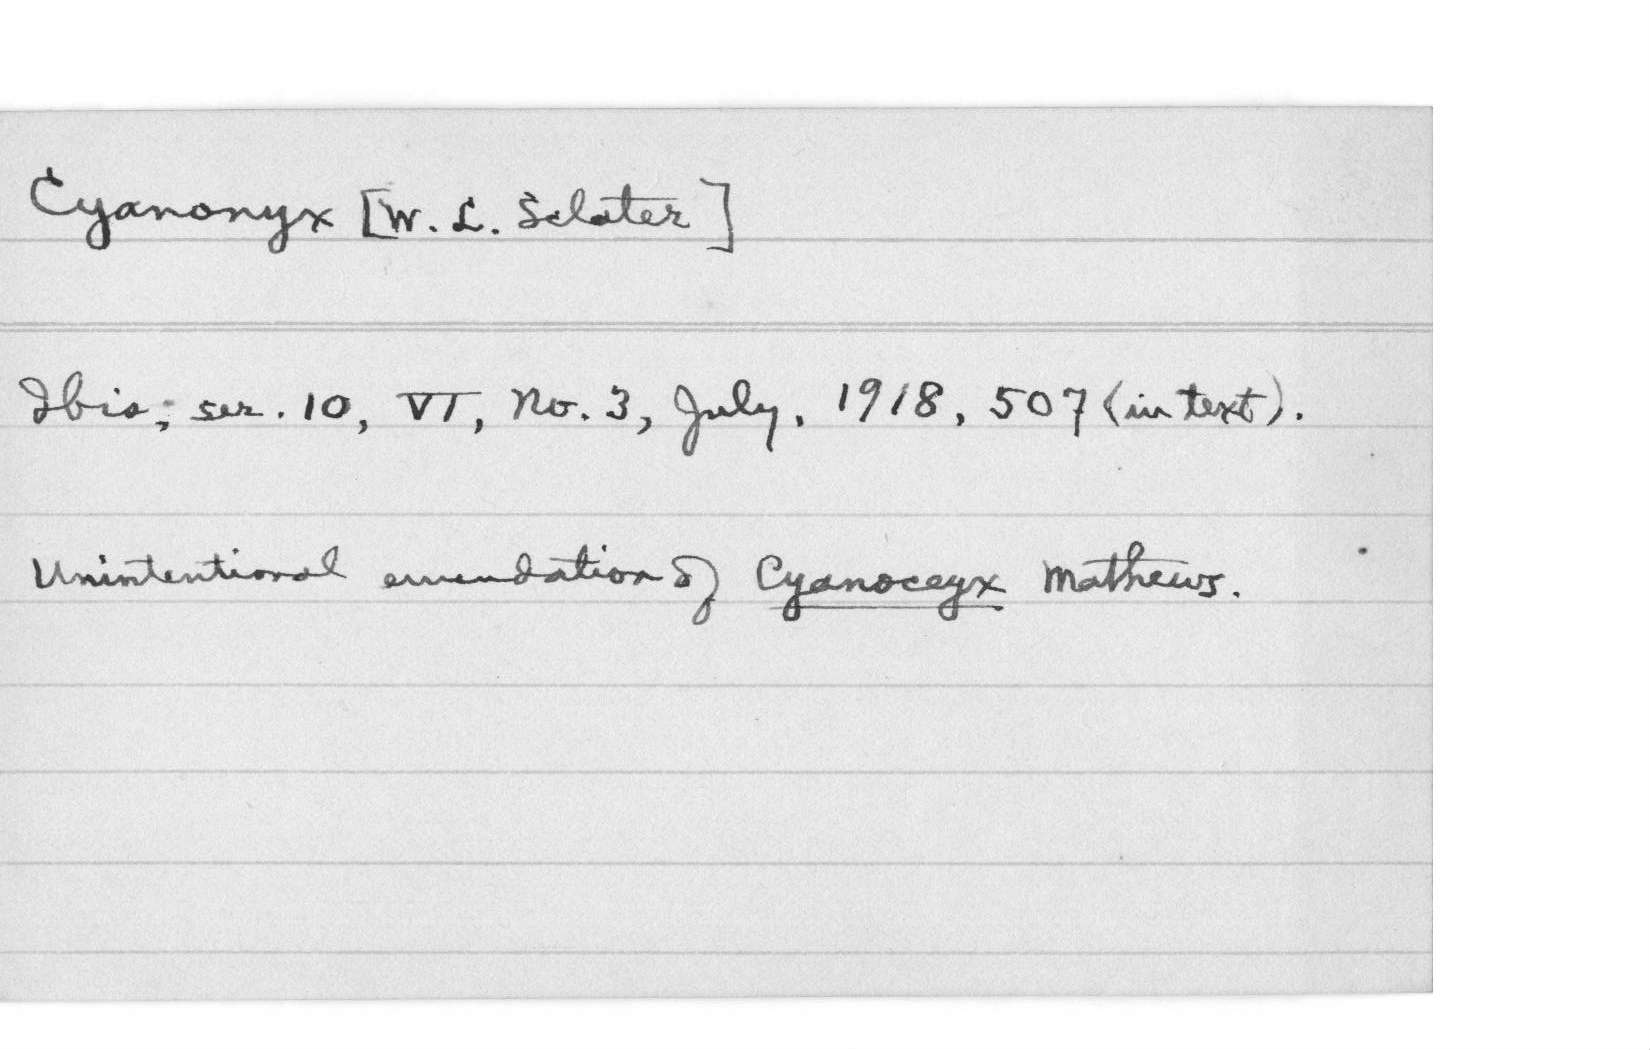 Cyanonyx [W. L. Sclater]
Ibis, ser. 10, VI, No. 3, July, 1918, 507 (in text).
Unintentional emendation of Cyanoceyx Mathews.